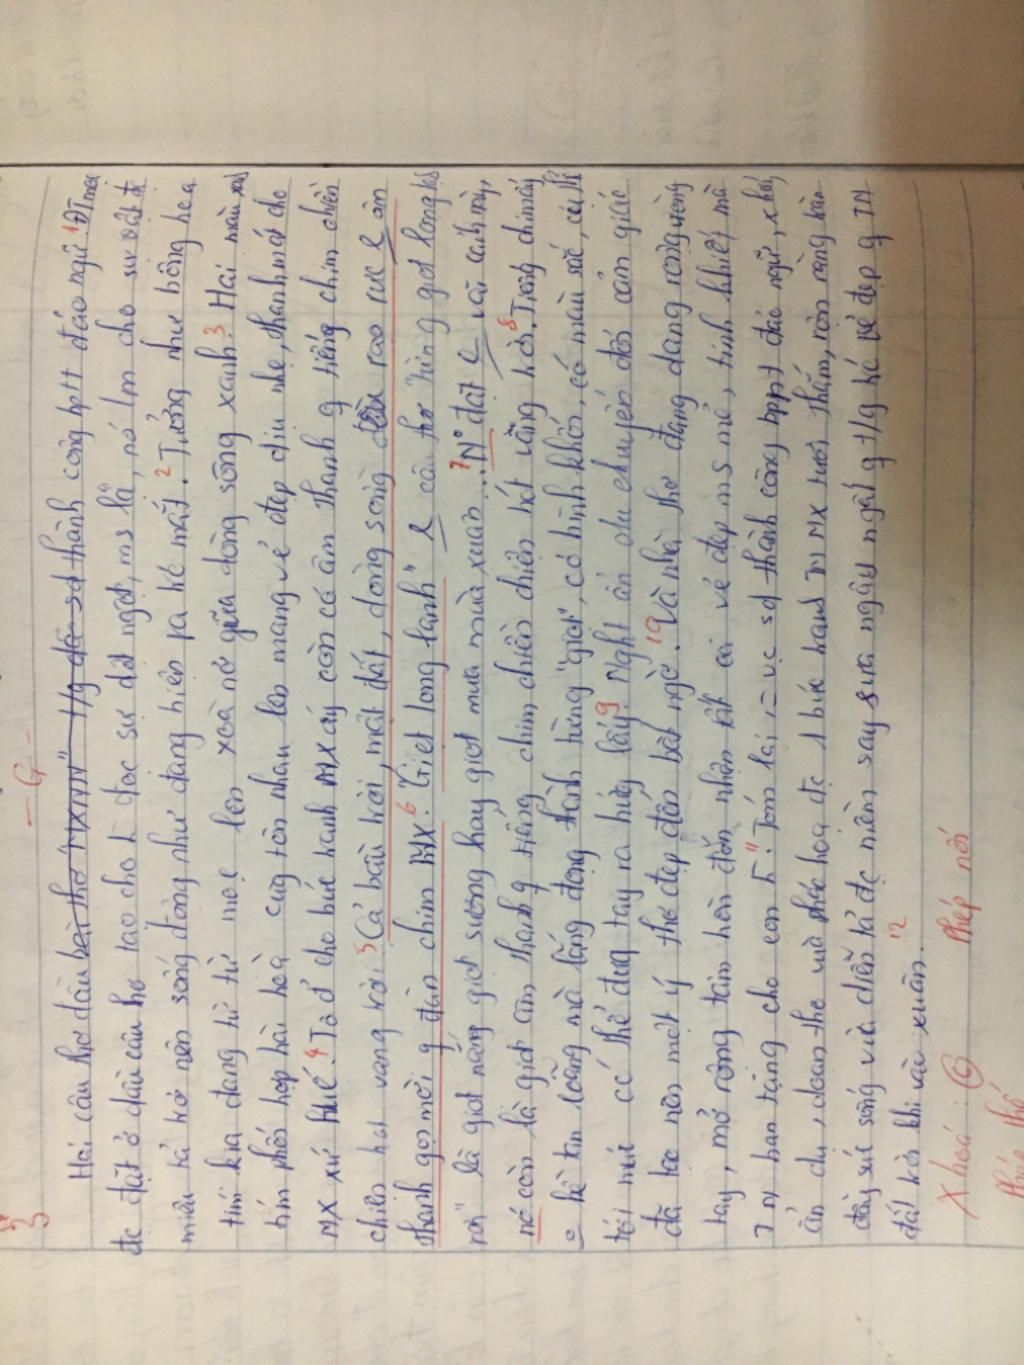 - G -
3
Hai câu thơ đầu bài thơ "MXNN" t/g đã sd thành công bptt đảo ngữ.¹ ĐT mọc
đc đặt ở đầu câu thơ tạo cho đọc sự đột ngột, ms lạ, nó lm cho sự vật đc
miêu tả trở nên sống động như đang hiện ra trc mắt.² Tưởng như bông hoa
tím kia đang từ từ mọc lên xoà nở giữa dòng sông xanh.³ Hai màu xanh
tím phối hợp hài hoà cùng tôn nhau lên mang vẻ đẹp dịu nhẹ, thanh mát cho
MX xứ Huế.⁴ Tô để cho bức tranh MX ấy còn có âm thanh g tiếng chim chiền
chiện hát vang trời.⁵ Cả bầu trời, mặt đất, dòng sông đều rạo rực âm
thanh gọi mời g đàn chim MX.⁶ "Giọt long lanh" câu thơ "từng giọt long lanh
rơi" là giọt nắng giọt sương hay giọt mưa mùa xuân...⁷ N° đặt vào cảnh này,
nó còn là giọt âm thanh g tiếng chim chiền chiện hót vằng trời.⁸ Tiếng chim ấy
k hề tan loãng mà lắng đọng thành từng "giọt", có hình khối, có màu sắc, cứ thế
tới mức có thể đưa tay ra hứng lấy.⁹ Nght ẩn dụ chuyển đổi cảm giác
đã tạo nên một ý thơ đẹp đến bất ngờ.¹⁰ Và nhà thơ đang dang rộng vòng
tay, mở rộng tâm hồn đón nhận tất cả vẻ đẹp ms mẻ, tinh khiết mà
TN ban tặng cho con .¹¹ Tóm lại, = vc sd thành công bptt đảo ngữ,
ẩn dụ, đoạn thơ vừa phác hoạ đc 1 bức tranh TN MX tươi thắm, rộn ràng tràn
đầy sức sống vừa diễn tả đc niềm say sưa ngây ngất g t/g trc vẻ đẹp g TN
đất trời khi vào xuân.¹²
Xhoá: G Phép nối
Phép thế